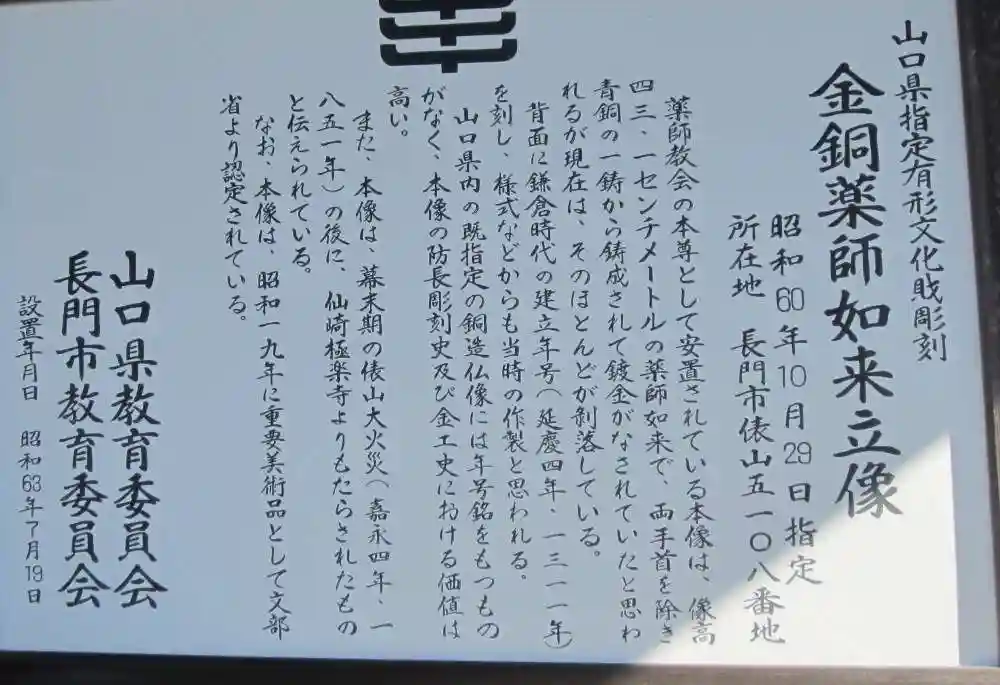 山口県指定有形文化財彫刻
金銅薬師如来立像
昭和60年10月29日指定
所在地 長門市俵山五一〇八番地
薬師教会の本尊として安置されている本像は、像高
四三、一センチメートルの薬師如来で、両手首を除き
青銅の一鋳から鋳成されて鍍金がなされていたと思わ
れるが現在は、そのほとんどが剝落している。
背面に鎌倉時代の建立年号(延慶四年、一三一一年)
を刻し、様式などからも当時の作製と思われる。
山口県内の既指定の銅造仏像には年号銘をもつもの
がなく、本像の防長彫刻史及び金工史における価値は
高い。
また、本像は、幕末期の俵山大火災(嘉永四年、一
八五一年)の後に、仙崎極楽寺よりもたらされたもの
と伝えられている。
なお、本像は、昭和一九年に重要美術品として文部
省より認定されている。
山口県教育委員会
長門市教育委員会
設置年月日 昭和63年7月19日